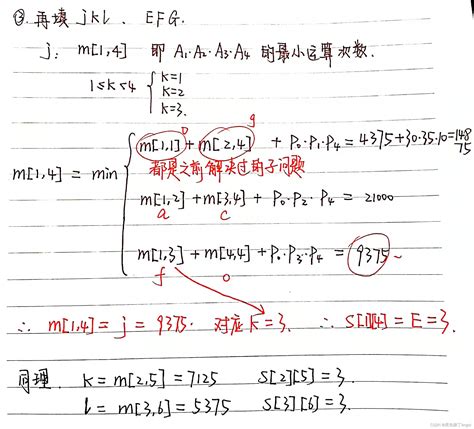 ③ 再填 jkl、EFG.
j: m[1,4] 即 A₁·A₂·A₃·A₄ 的最小运算次数.
1≤k<4 { k=1
k=2
k=3.
0 g
m[1,1] + m[2,4] + P₀·P₁·P₄ = 4375+30·35·10=14875
都是之前解决过的子问题
m[1,4] = min { m[1,2] + m[3,4] + P₀·P₂·P₄ = 21000
a c
m[1,3] + m[4,4] + P₀·P₃·P₄ = 9375
f 0
∴ m[1,4] = j = 9375. 对应 k=3. ∴ S[1][4] = E = 3.
同理. k = m[2,5] = 7125 S[2][5] = 3.
l = m[3,6] = 5375 S[3][6] = 3.